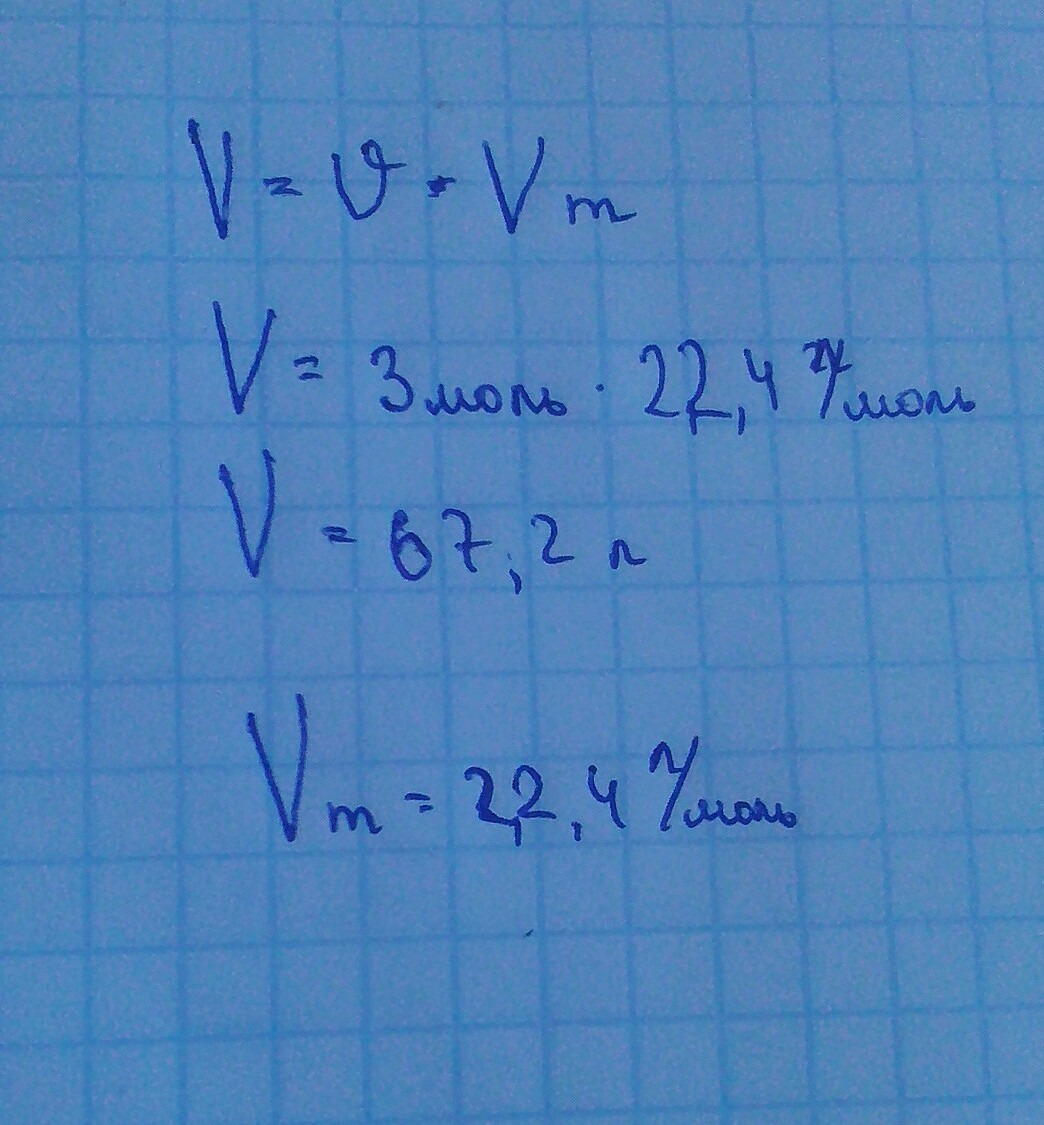 V = ϑ · Vm
V = 3 моль · 22,4 л/моль
V = 67,2 л
Vm = 22,4 л/моль